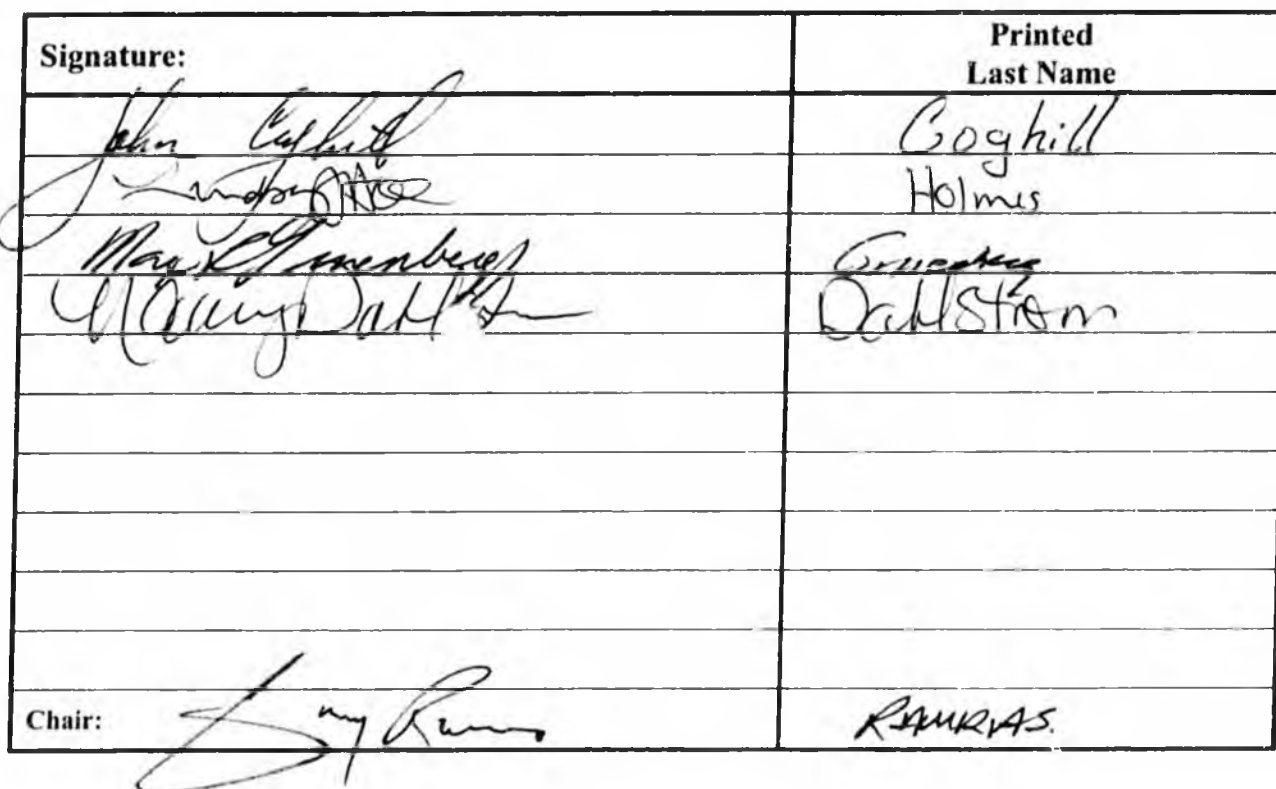 Signature: Printed Last Name
John Coghill Coghill
Lindsey Holmes Holmes
Max Gruenberg Gruenberg
Nancy Dahlstrom Dahlstrom
Chair: Jay Ramras RAMRAS.